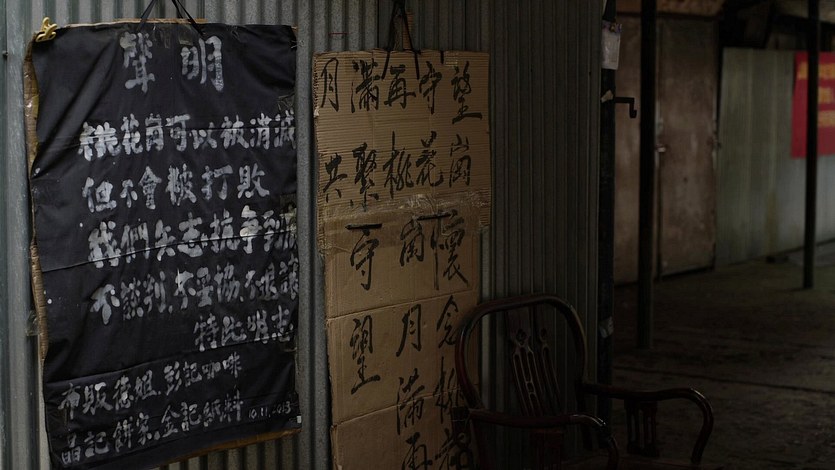 聲明
桃花崗可以被消滅
但不會被打敗
我們矢志抗爭到底
不談判.不妥協.不退讓
特此明志
布販德姐.彭記咖啡
晶記餅家.金記紙料
月滿再守望
共聚桃花崗
懷念桃
崗月滿再
守望